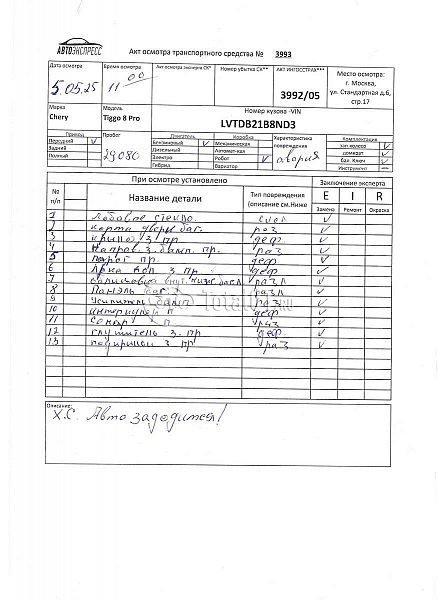 АВТОЭКСПРЕСС
Акт осмотра транспортного средства № 3993
Дата осмотра
5.05.25
Время осмотра
11 00
Акт осмотра эксперта СК*
Номер убытка СК**
АКТ ИНГОССТРАХ***
3992/05
Место осмотра:
г. Москва,
ул. Стандартная д.6,
стр.17
Марка
Chery
Модель
Tiggo 8 Pro
Номер кузова -VIN
LVTDB21B8ND3
Привод
Передний √
Задний
Полный
Пробег
29080
Двигатель
Бензиновый √
Дизельный
Электро
Гибрид
Коробка
Механическая
Автомат-кая
Робот √
Вариатор
Характеристика
повреждения
авария
Комплектация
зап.колесо √
домкрат √
бал. Ключ √
Инструмент
№
п/п
При осмотре установлено
Название детали
Тип повреждения
(описание см.Ниже
Заключение эксперта
E I R
Замена Ремонт Окраска
1 Лобовое стекло. √
2 карта двери баг. раз √
3 крыло з. пр деф √
4 Направ. з. бамп. пр. раз √
5 порог пр. деф √
6 Арка кол. з. пр. деф √
7 √
8 Панель √
9 Усилитель √
10 деф √
11 √
12 глушитель з. пр деф √
13 подкрылок з. пр раз √
Total
Описание:
Х.С. Авто заводится!